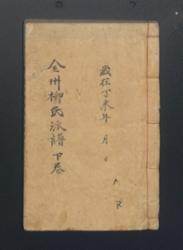 歲在丁未年 月 日
全州柳氏派譜 下卷